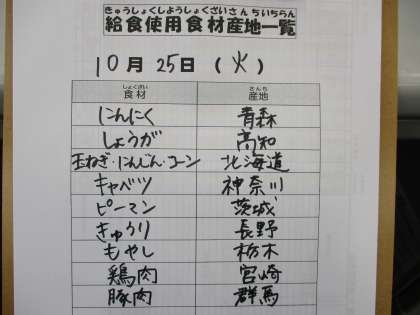 きゅうしょくしようしょくざいさんちいちらん
給食使用食材産地一覧
10月25日(火)
しょくざい さんち
食材 産地
にんにく 青森
しょうが 高知
玉ねぎ・にんじん・コーン 北海道
キャベツ 神奈川
ピーマン 茨城
きゅうり 長野
もやし 栃木
鶏肉 宮崎
豚肉 群馬